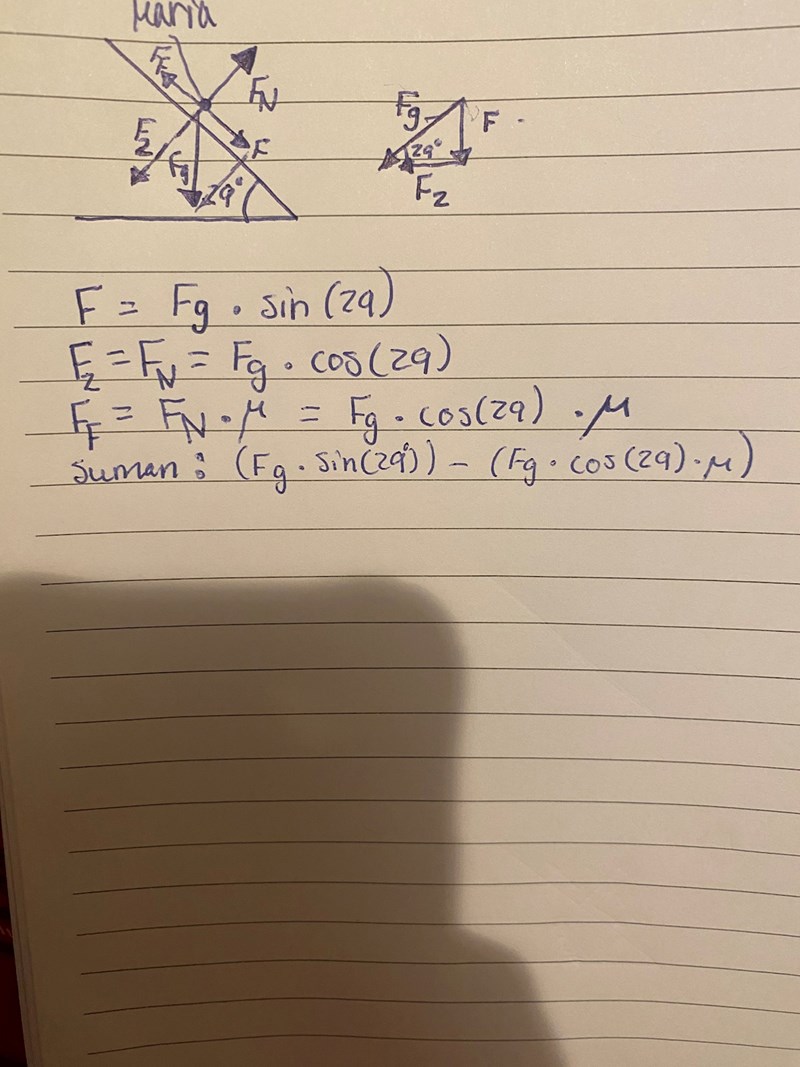 Maria
F_F F_N
F_2 F_g F 29°
F_g F
29°
F_2
F = Fg · sin(29)
F_2 = F_N = Fg · cos(29)
F_F = F_N · μ = Fg · cos(29) · μ
suman : (Fg · sin(29°)) - (Fg · cos(29) · μ)